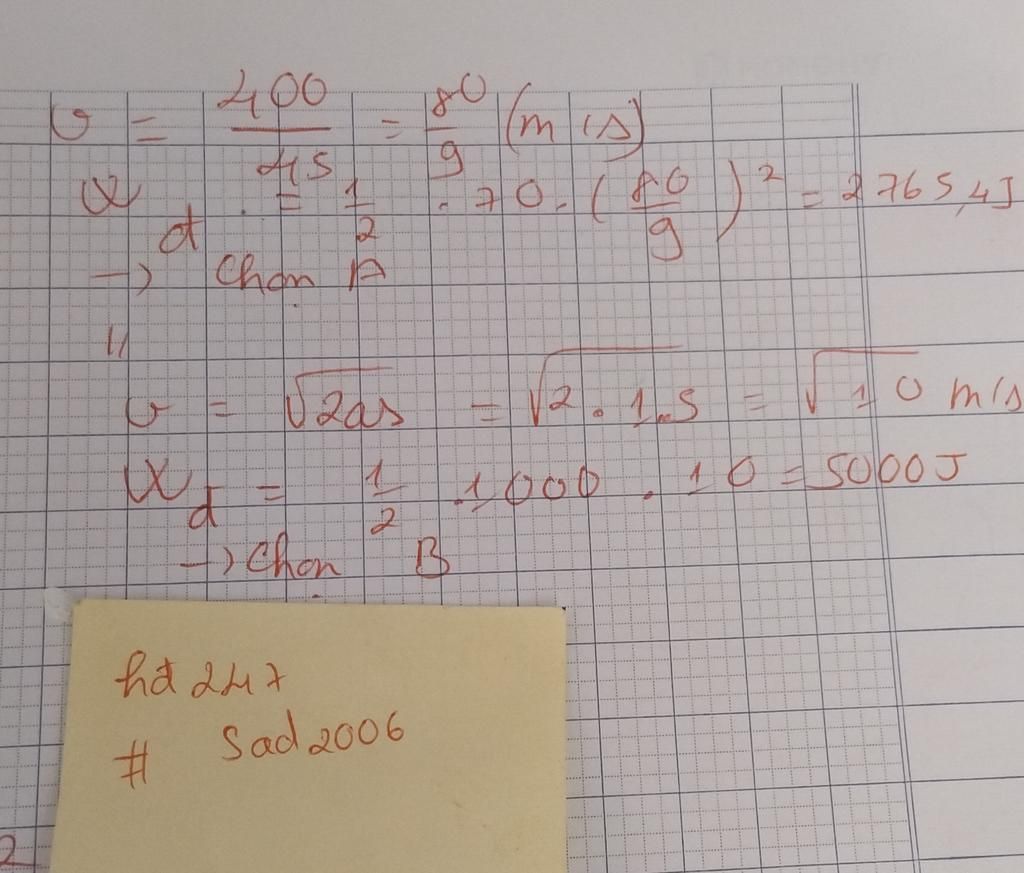 v = 400/45 = 80/9 (m/s)
Wđ = 1/2 . 70 . (80/9)² = 2765,4J
→ Chọn A
v = √2as = √2.1.5 = √10 m/s
Wđ = 1/2 . 1000 . 10 = 5000J
→ Chọn B
hđ247
# Sad2006
2